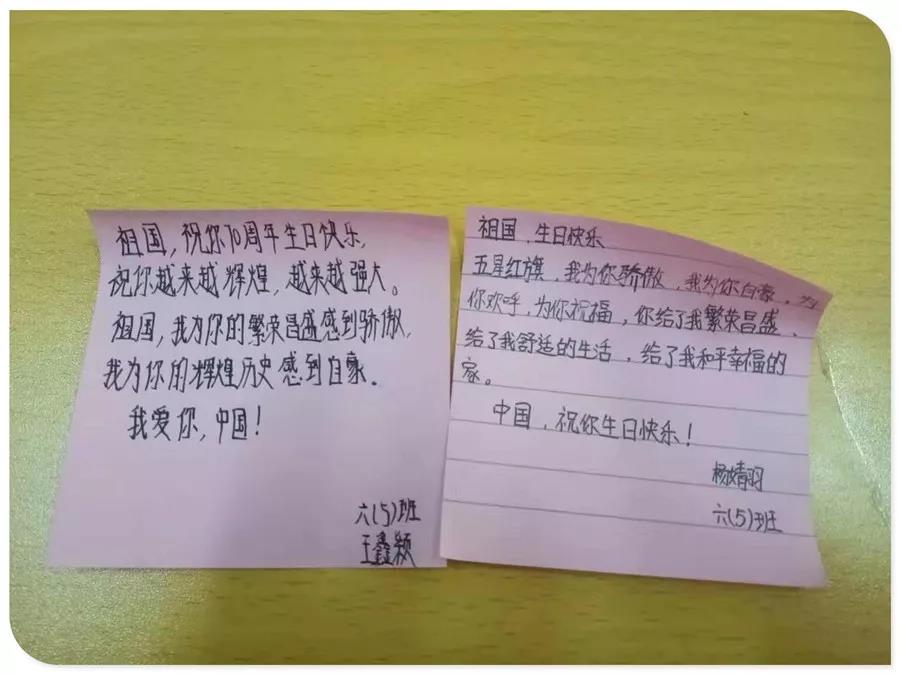 祖国,祝你70周年生日快乐,
祝你越来越辉煌,越来越强大。
祖国,我为你的繁荣昌盛感到骄傲,
我为你的辉煌历史感到自豪.
我爱你,中国!
六(5)班
王鑫颖
祖国,生日快乐
五星红旗,我为你骄傲,我为你自豪,为
你欢呼,为你祝福,你给了我繁荣昌盛、
给了我舒适的生活,给了我和平幸福的
家。
中国,祝你生日快乐!
杨婧羽
六(5)班